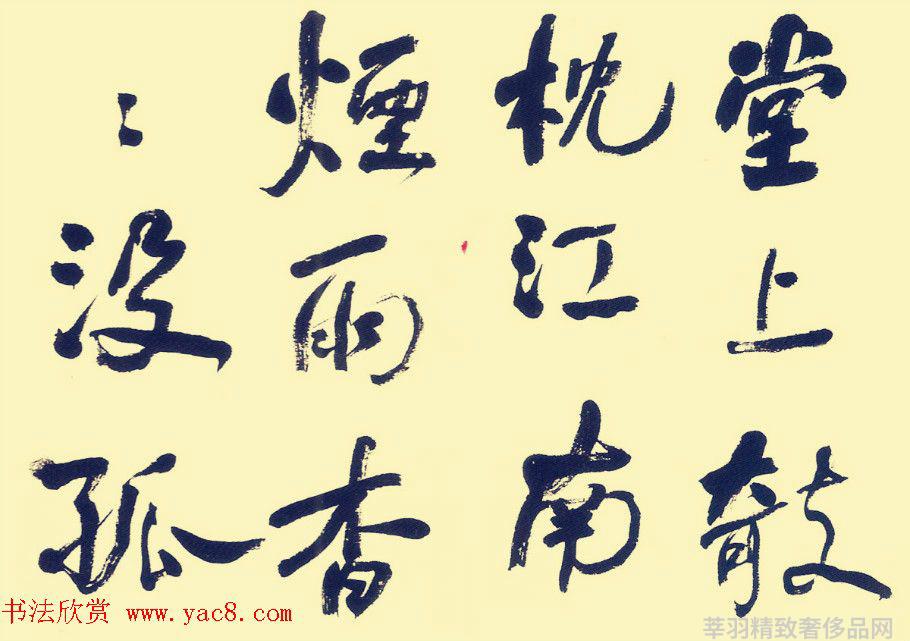 堂上敧
枕江南
煙雨杳
〻没孤
书法欣赏 www.yac8.com
莘羽精致奢侈品网